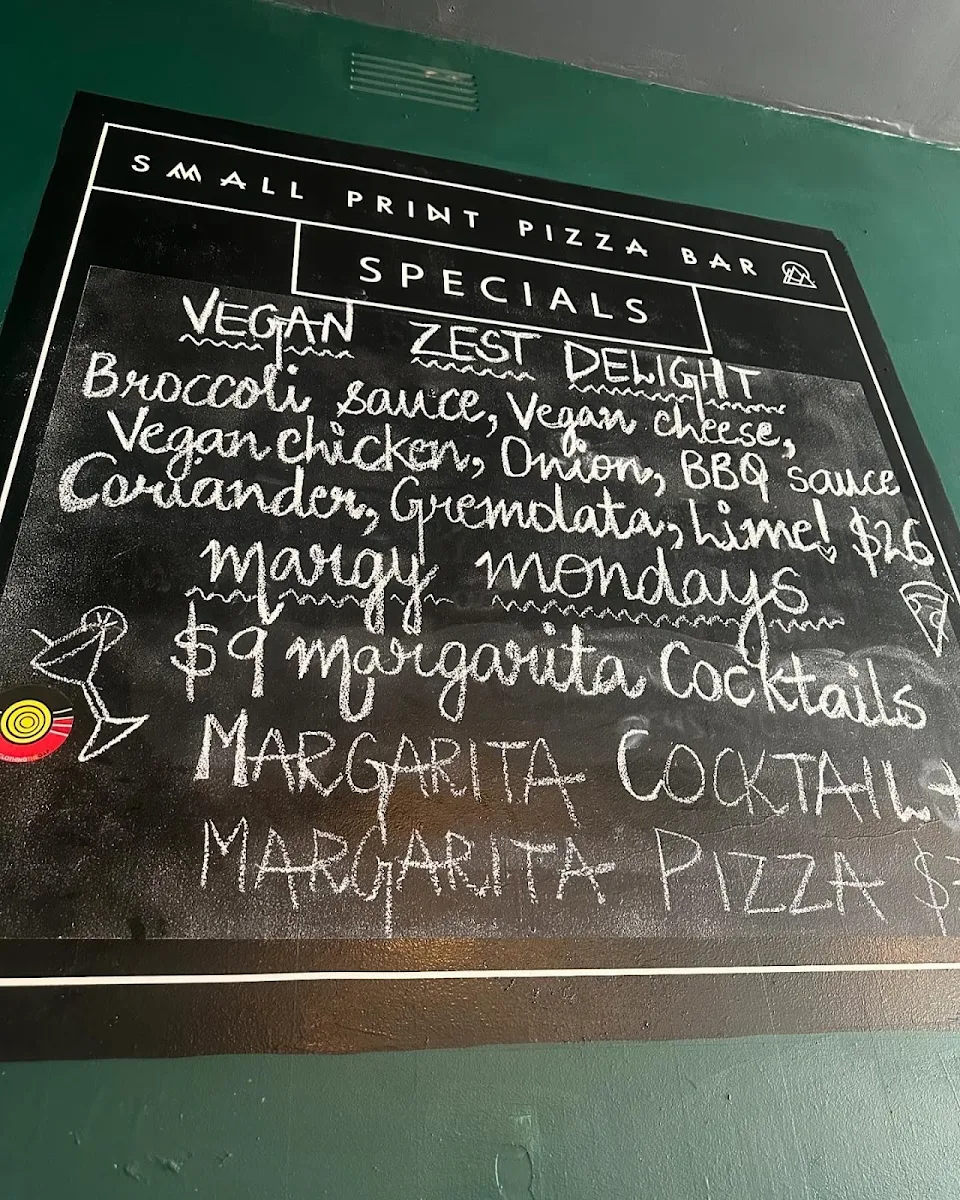 SMALL PRINT PIZZA BAR
SPECIALS
VEGAN ZEST DELIGHT
Broccoli sauce, Vegan cheese,
Vegan chicken, Onion, BBQ sauce
Coriander, Gremolata, Lime! $26
margy mondays
$9 margarita Cocktails
MARGARITA COCKTAIL +
MARGARITA PIZZA